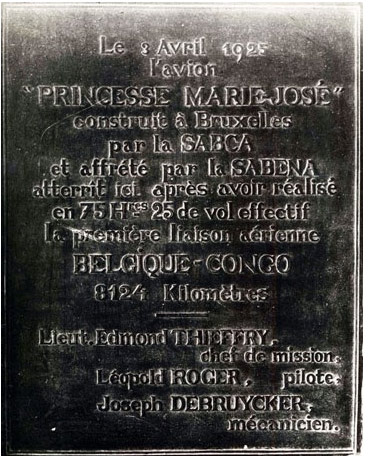 Le 3 Avril 1925
l'avion
"PRINCESSE MARIE-JOSÉ"
construit à Bruxelles
par la SABCA
et affrété par la SABENA
atterrit ici après avoir réalisé
en 75 Hres 25 de vol effectif
la première liaison aérienne
BELGIQUE-CONGO
8124 Kilomètres
Lieut. Edmond THIEFFRY,
chef de mission.
Léopold ROGER, pilote.
Joseph DEBRUYCKER,
mécanicien.